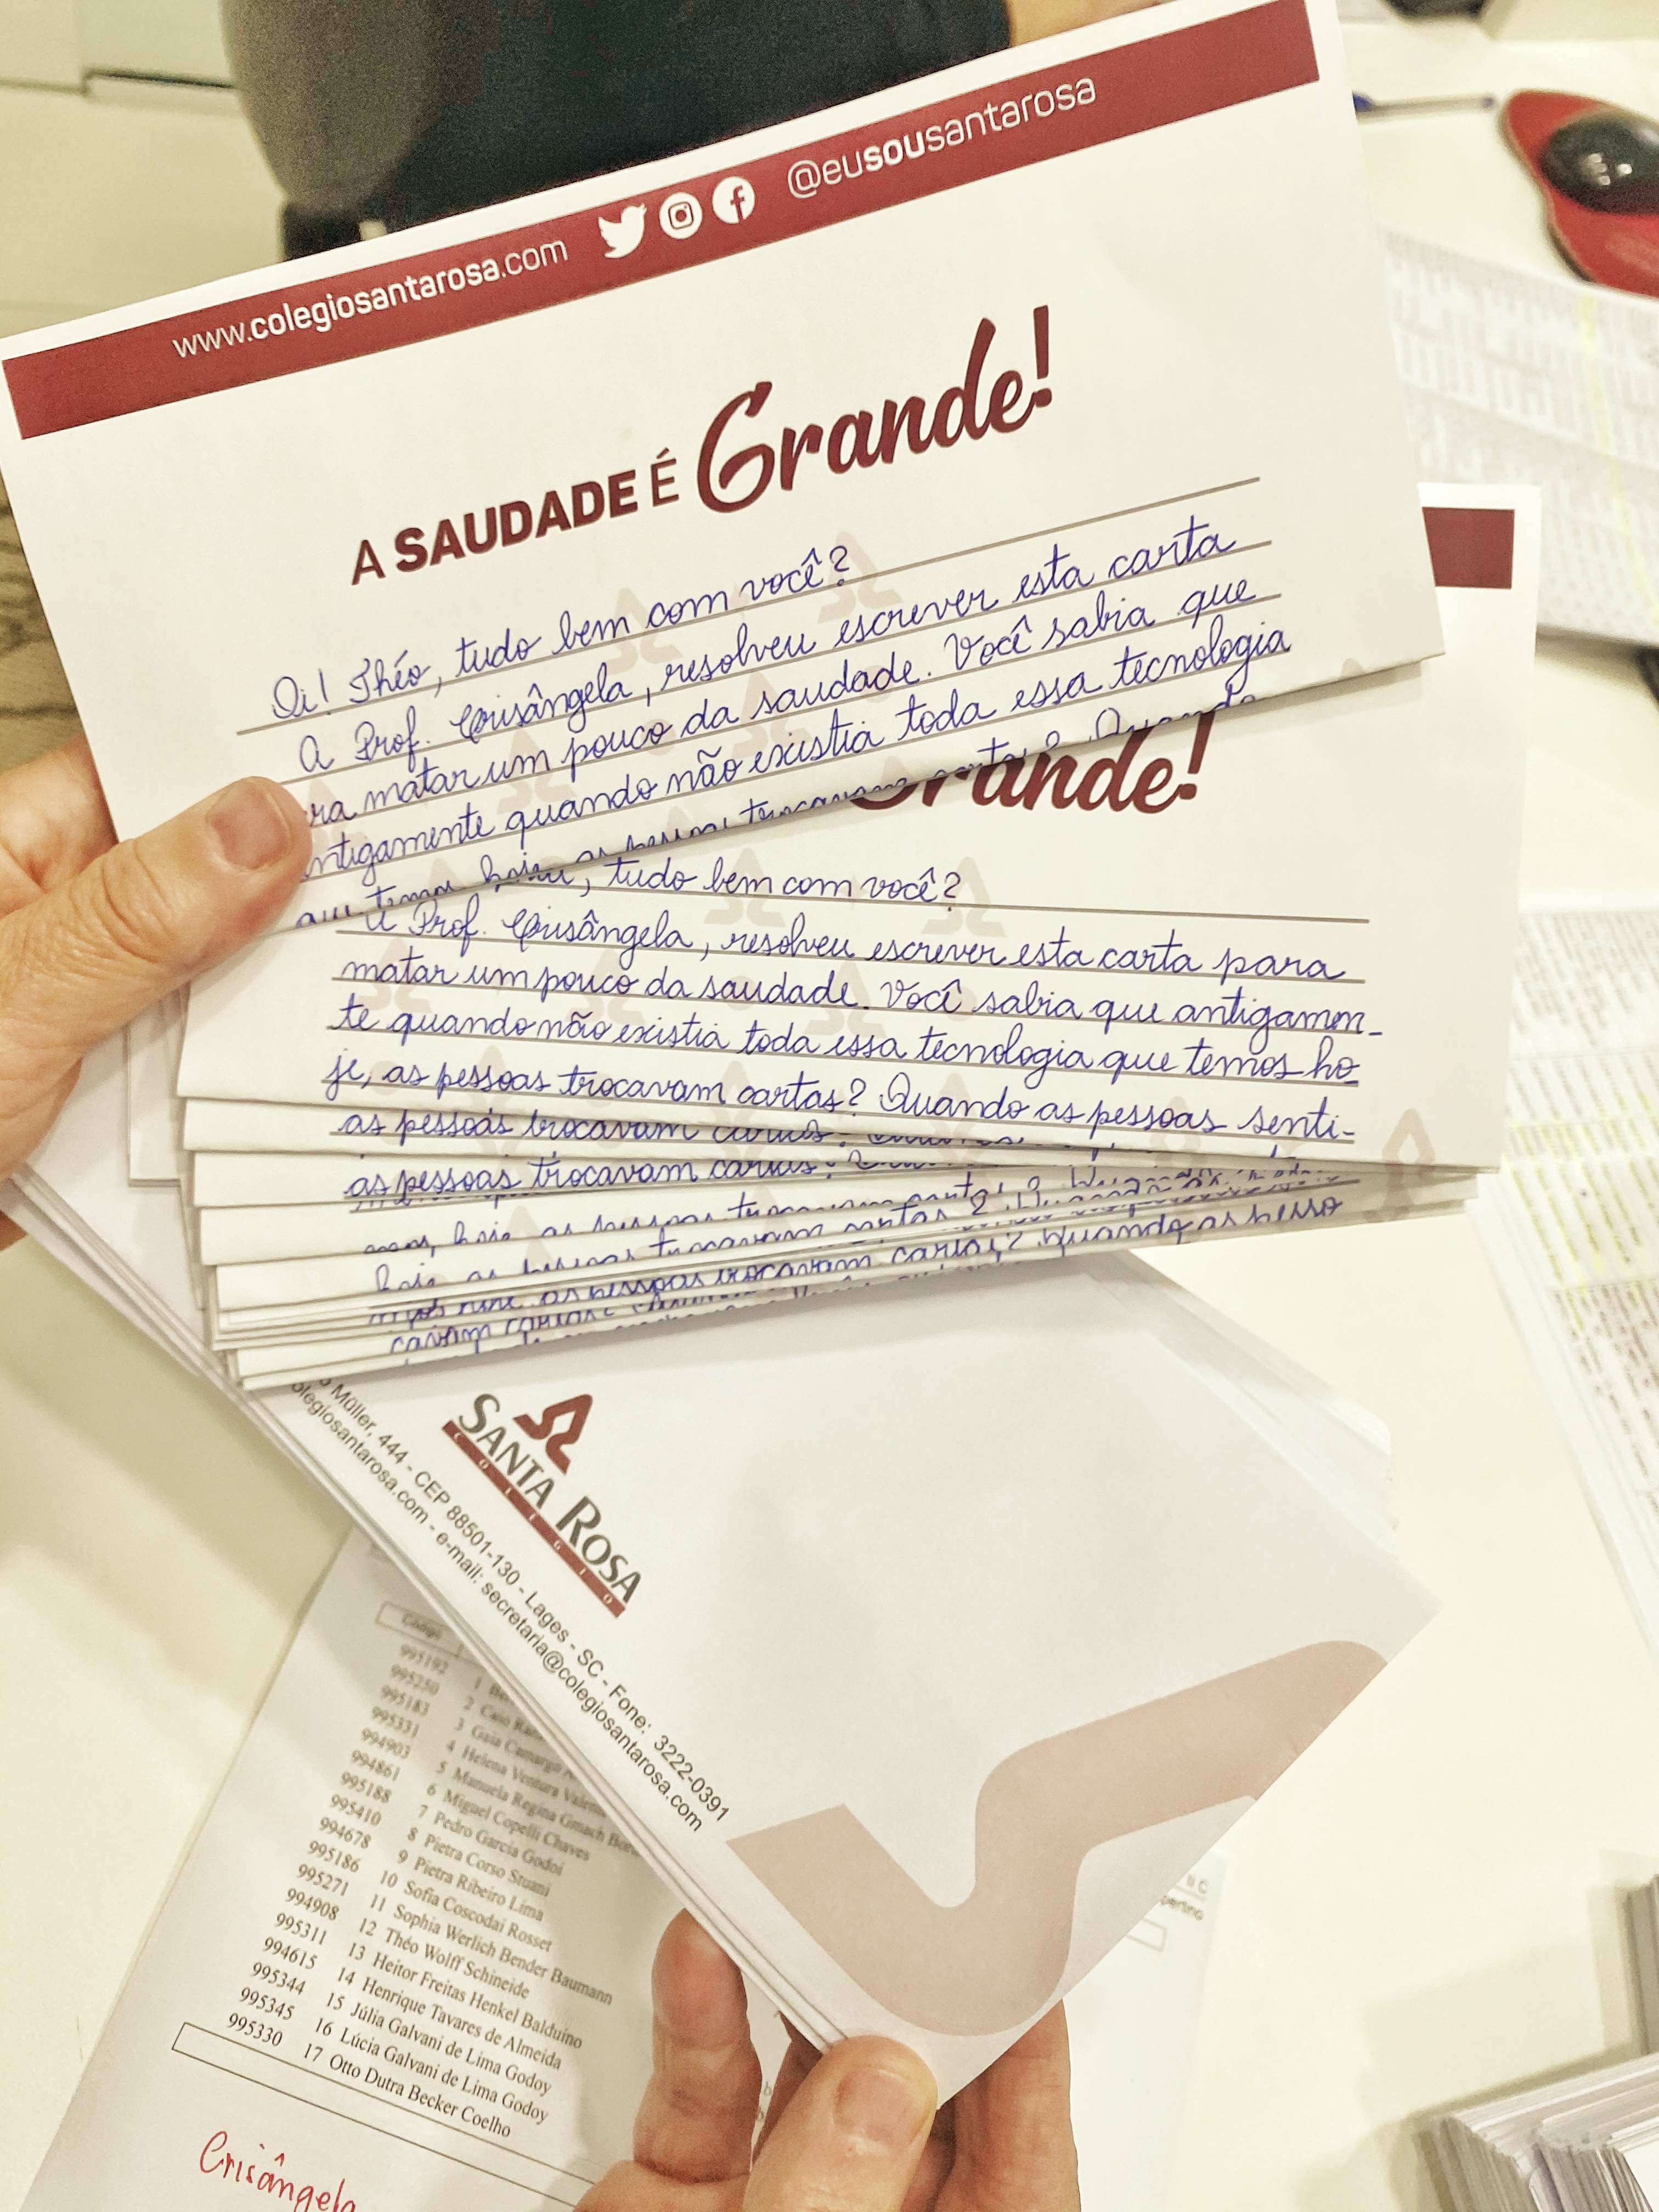 www.colegiosantarosa.com @eusousantarosa
A SAUDADE É Grande!
Oi! Théo, tudo bem com você?
A Prof. Crisângela, resolveu escrever esta carta
ra matar um pouco da saudade. Você sabia que
ntigamente quando não existia toda essa tecnologia
que temos hoje, as pessoas trocavam cartas? Quando
rande!
, tudo bem com você?
A Prof. Crisângela, resolveu escrever esta carta para
matar um pouco da saudade. Você sabia que antigamen-
te quando não existia toda essa tecnologia que temos ho
je, as pessoas trocavam cartas? Quando as pessoas senti-
as pessoas trocavam cartas?
as pessoas trocavam cartas?
hoje as pessoas trocavam cartas?
hoje as pessoas trocavam cartas?
hoje, as pessoas trocavam cartas? Quando as pesso
cavam cartas?
SANTA ROSA
COLÉGIO
Müller, 444 - CEP 88501-130 - Lages - SC - Fone: 3222-0391
olegiosantarosa.com - e-mail: secretaria@colegiosantarosa.com
Código
995192 1
995250 2
995183 3 Gaia Camargo
995331 4 Helena Ventura
994903 5 Manuela Regina Gmach
994861 6 Miguel Copelli Chaves
995188 7 Pedro Garcia Godoi
995410 8 Pietra Corso Stuani
994678 9 Pietra Ribeiro Lima
995186 10 Sofia Coscodai Rosset
995271 11 Sophia Werlich Bender Baumann
994908 12 Théo Wolff Schineide
995311 13 Heitor Freitas Henkel Balduino
994615 14 Henrique Tavares de Almeida
995344 15 Júlia Galvani de Lima Godoy
995345 16 Lúcia Galvani de Lima Godoy
995330 17 Otto Dutra Becker Coelho
Crisângela